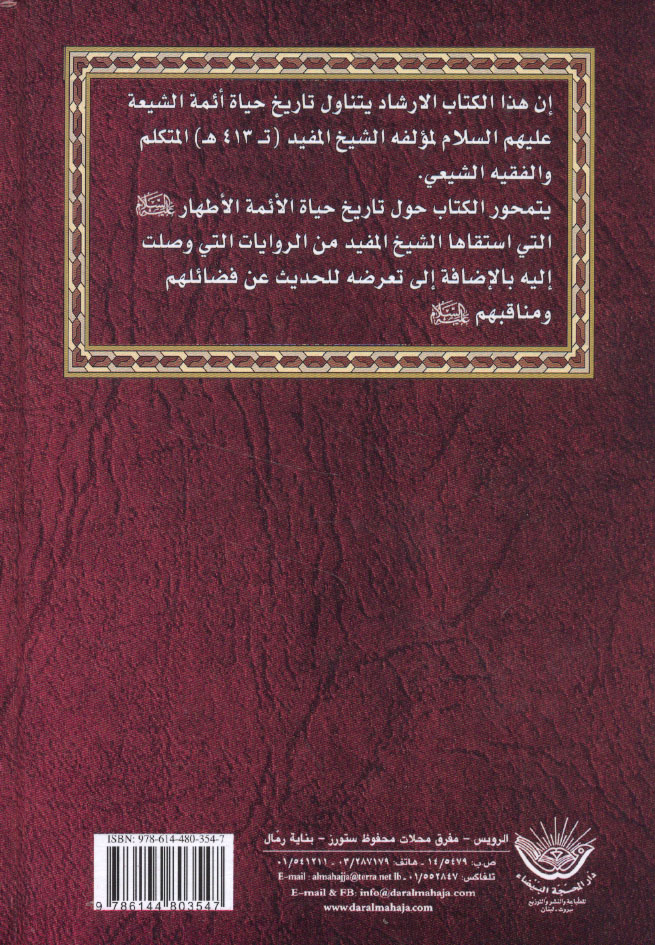 إن هذا الكتاب الارشاد يتناول تاريخ حياة أئمة الشيعة
عليهم السلام لمؤلفه الشيخ المفيد (تـ ٤١٣ هـ) المتكلم
والفقيه الشيعي.
يتمحور الكتاب حول تاريخ حياة الأئمة الأطهار عليهم السلام
التي استقاها الشيخ المفيد من الروايات التي وصلت
إليه بالإضافة إلى تعرضه للحديث عن فضائلهم
ومناقبهم عليهم السلام
ISBN: 978-614-480-354-7
9 786144 803547
الرويس - مفرق محلات محفوظ ستورز - بناية رمال
ص.ب: ١٤/٥٤٧٩ - هاتف: ٠٣/٢٨٧١٧٩ - ٠١/٥٤١٢١١
تلفاكس: ٠١/٥٥٢٨٤٧ - E-mail : almahajja@terra.net.lb
E-mail & FB: info@daralmahaja.com
www.daralmahaja.com
دار المحجة البيضاء
للطباعة والنشر والتوزيع
بيروت - لبنان